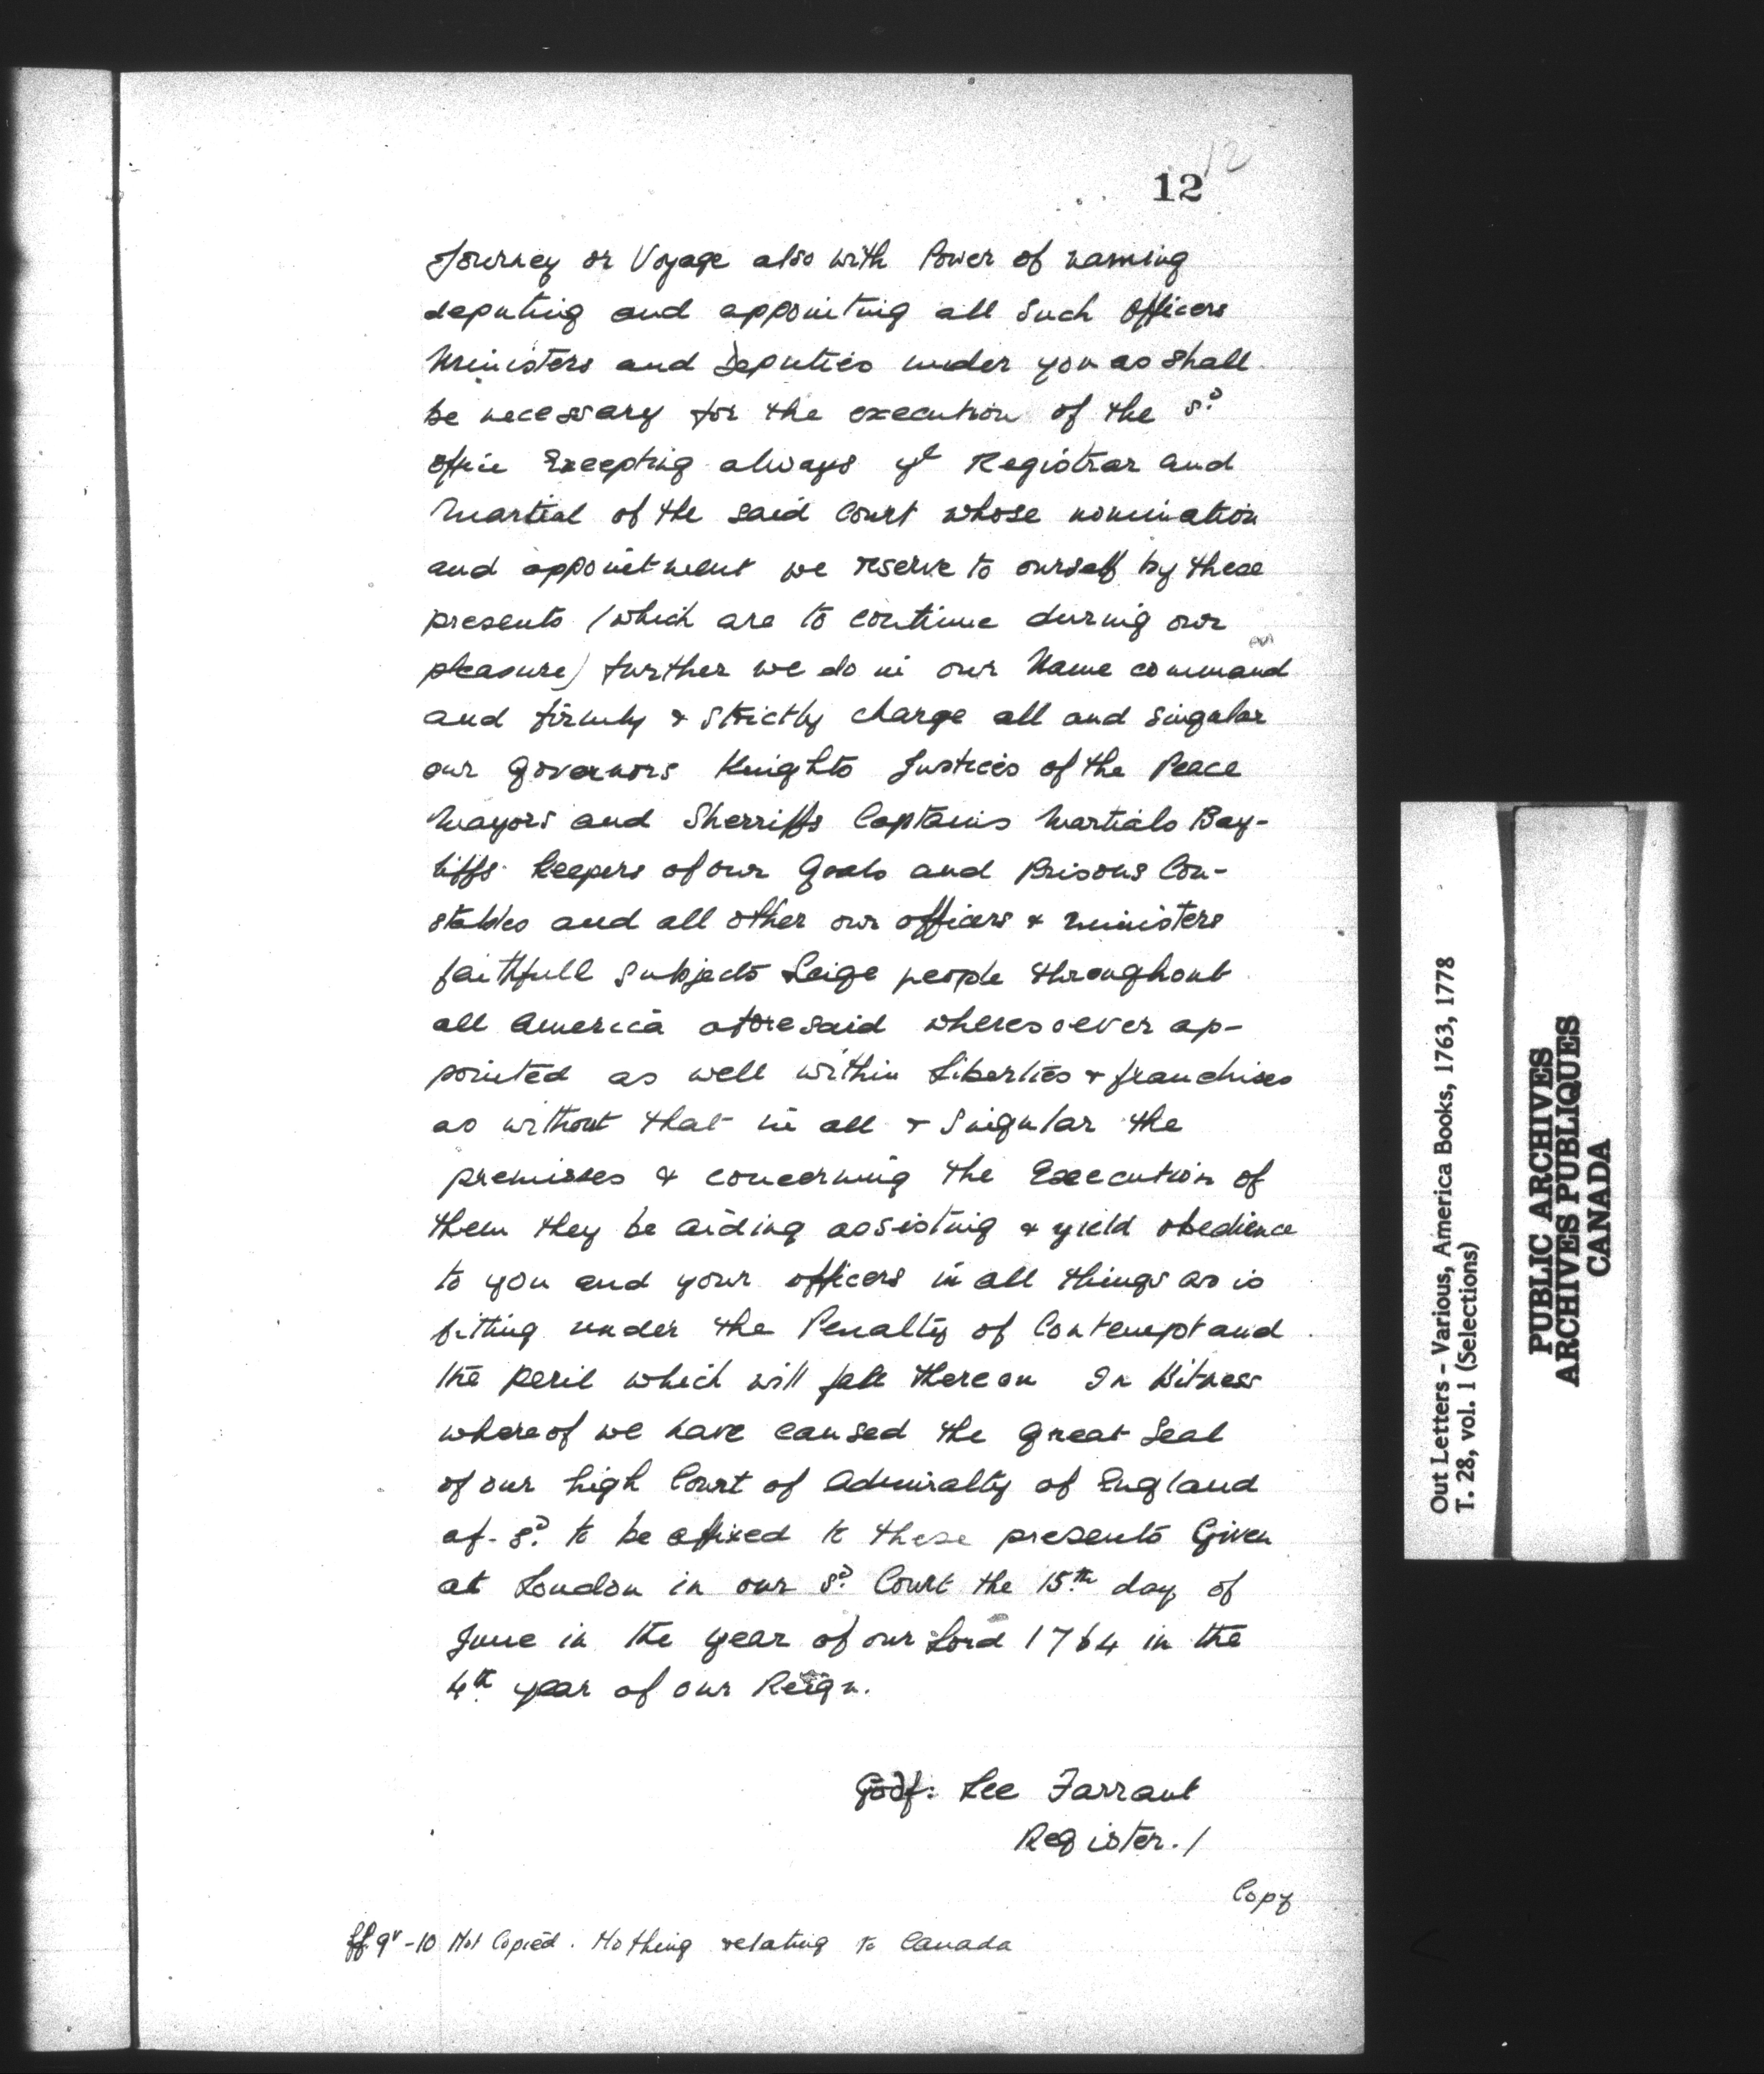 12
12
Journey or Voyage also with Power of naming
deputing and appointing all such Officers
Ministers and Deputies under you as shall
be necessary for the execution of the sd.
office Excepting always ye Registrar and
Martial of the said Court whose nomination
and appointment we reserve to ourself by these
presents (which are to continue during our
pleasure) further we do in our Name command
and firmly & strictly charge all and singular
our Governors Knights Justices of the Peace
Mayors and Sherriffs Captains Martials Bay-
liffs Keepers of our Goals and Prisons Con-
stables and all other our officers & ministers
faithfull Subjects Leige people throughout
all America aforesaid wheresoever ap-
pointed as well within Liberties & franchises
as without that in all & Singular the
premisses & concerning the Execution of
them they be aiding assisting & yield obedience
to you and your officers in all things as is
fitting under the Penalty of Contempt and
the peril which will fall thereon In Witness
whereof we have caused the Great Seal
of our high Court of Admiralty of England
af-sd. to be afixed to these presents Given
at London in our sd. Court the 15.th day of
June in the year of our Lord 1764 in the
4.th year of our Reign.
Godf: Lee Farrant
Register./
Copy
ff.9v-10 Not Copied. Nothing relating to Canada
Out Letters - Various, America Books, 1763, 1778
T. 28, vol. 1 (Selections)
PUBLIC ARCHIVES
ARCHIVES PUBLIQUES
CANADA